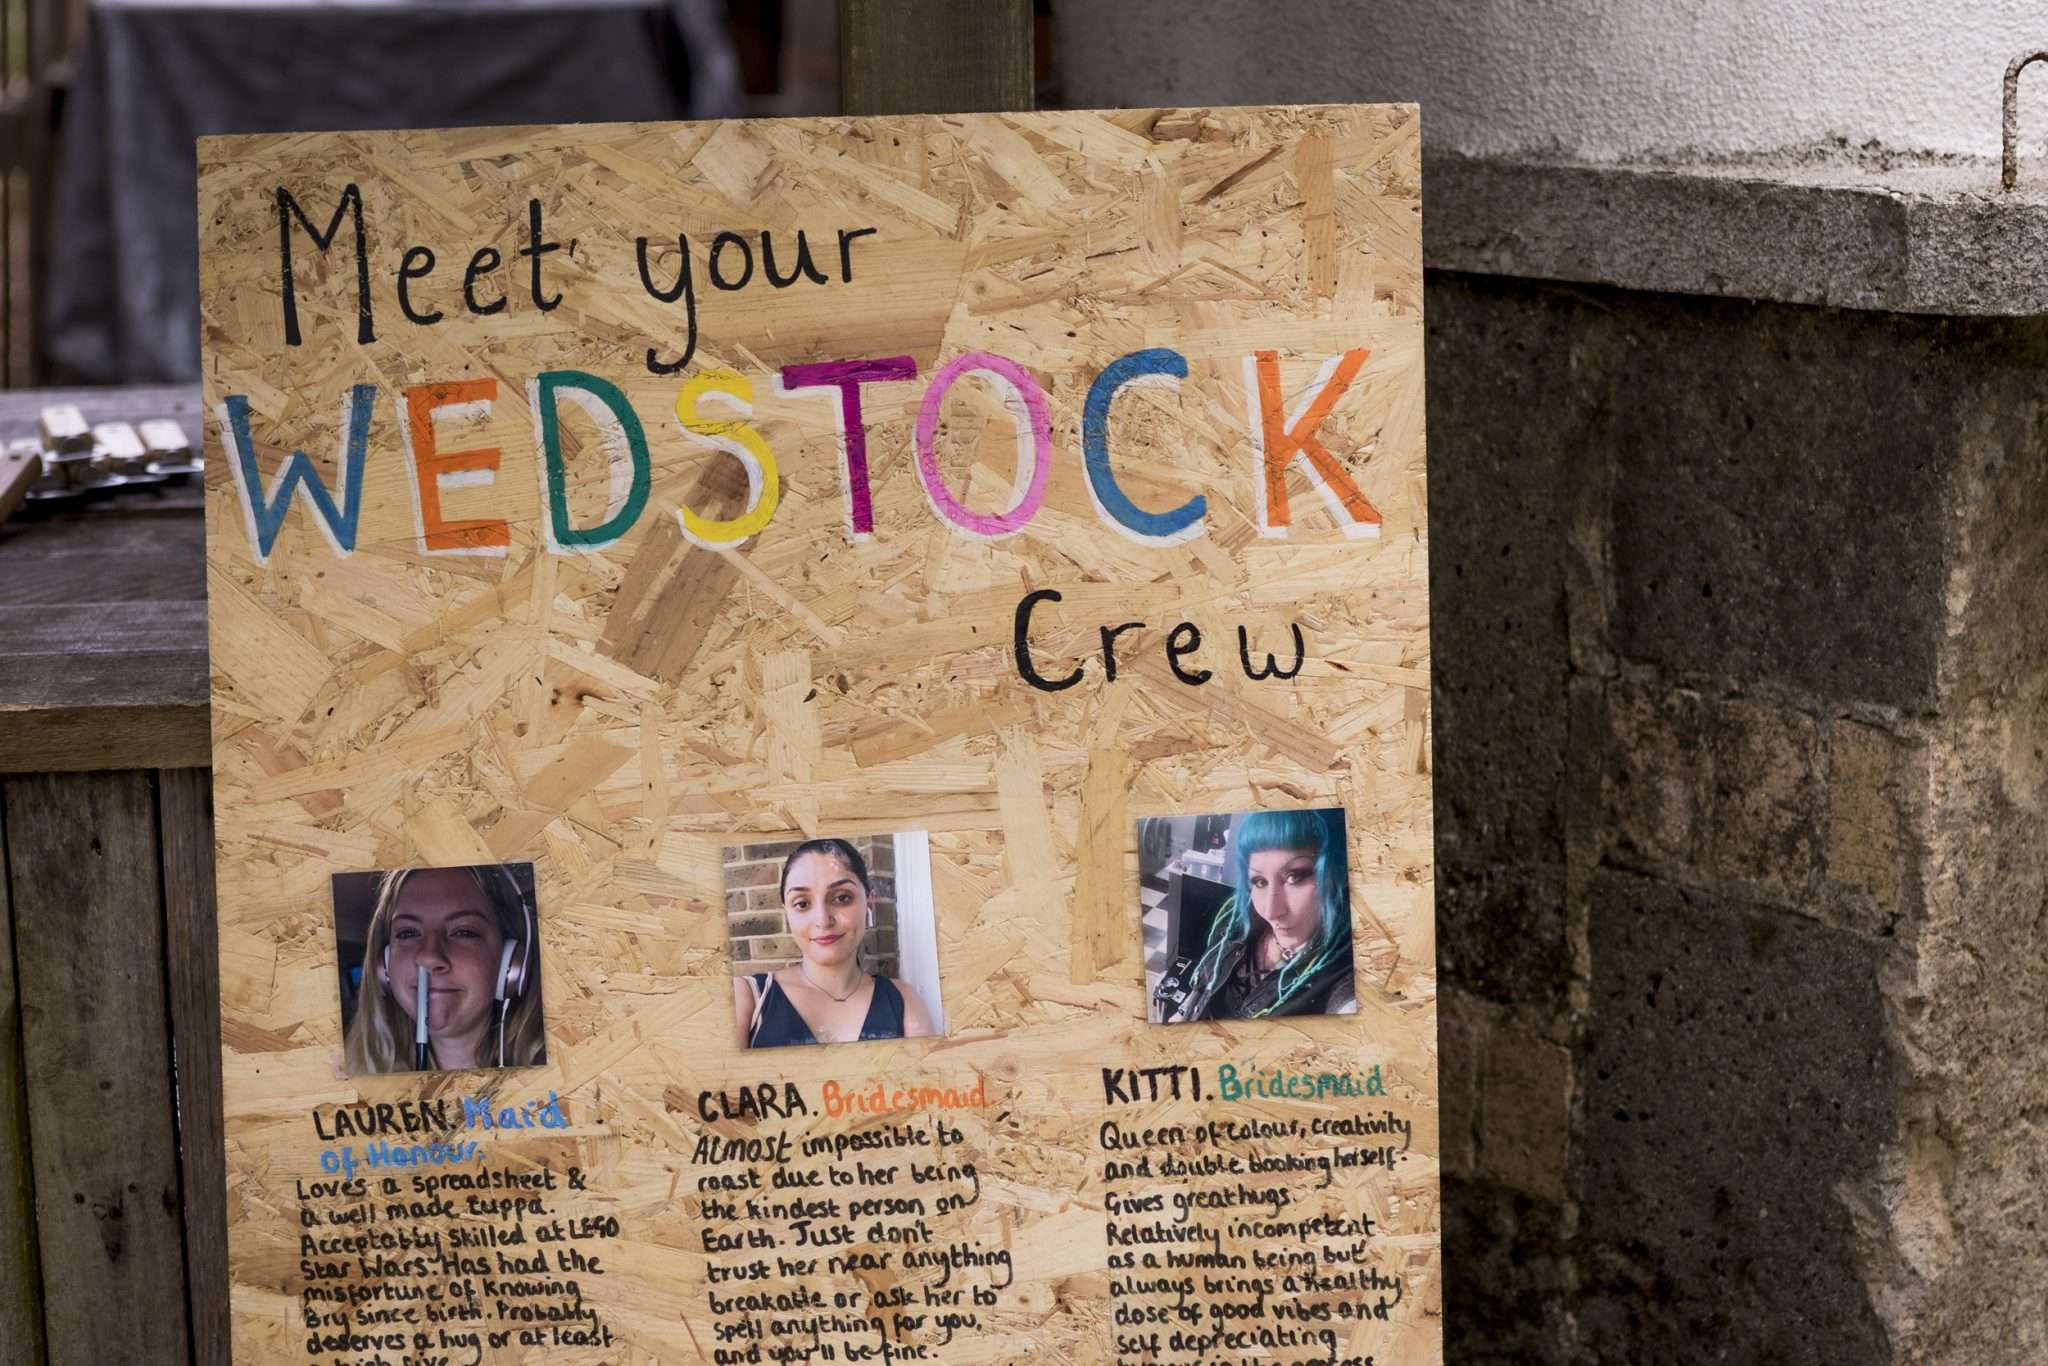 Meet your
WEDSTOCK
Crew
LAUREN. Maid
of Honour.
Loves a spreadsheet &
a well made cuppa.
Acceptably skilled at LEGO
Star Wars. Has had the
misfortune of knowing
Bry since birth. Probably
deserves a hug or at least
a high five
CLARA. Bridesmaid.
ALMOST impossible to
roast due to her being
the kindest person on
Earth. Just don't
trust her near anything
breakable or ask her to
spell anything for you,
and you'll be fine.
KITTI. Bridesmaid
Queen of colour, creativity
and double booking herself.
Gives great hugs.
Relatively incompetent
as a human being but
always brings a healthy
dose of good vibes and
self depreciating
in the process